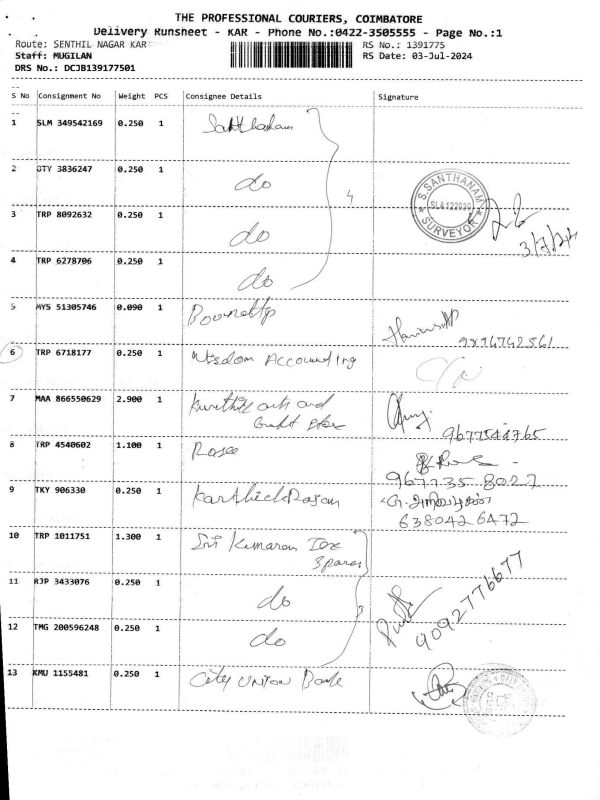 THE PROFESSIONAL COURIERS, COIMBATORE
Delivery Runsheet - KAR - Phone No.:0422-3505555 - Page No.:1
Route: SENTHIL NAGAR KAR
RS No.: 1391775
Staff: MUGILAN
RS Date: 03-Jul-2024
DRS No.: DCJB139177501
S No Consignment No Weight PCS Consignee Details Signature
1 SLM 349542169 0.250 1 Santhanam
2 OTY 3836247 0.250 1 do
4
S. SANTHANAM
SLA122090
SURVEYOR
3 TRP 8092632 0.250 1 do
3/7/24
4 TRP 6278706 0.250 1 do
5 MYS 51305746 0.090 1
9876742561
6 TRP 6718177 0.250 1 Wisdom Accounting
7 MAA 866550629 2.900 1 arts and
9677544765
8 TRP 4540602 1.100 1
967735 8027
9 TKY 906330 0.250 1 Karthick Rajan
638042 6472
10 TRP 1011751 1.300 1 Sri Kumaran Tex
Spares
11 RJP 3433076 0.250 1 do
3
9092776677
12 TMG 200596248 0.250 1 do
13 KMU 1155481 0.250 1 City Union Bank